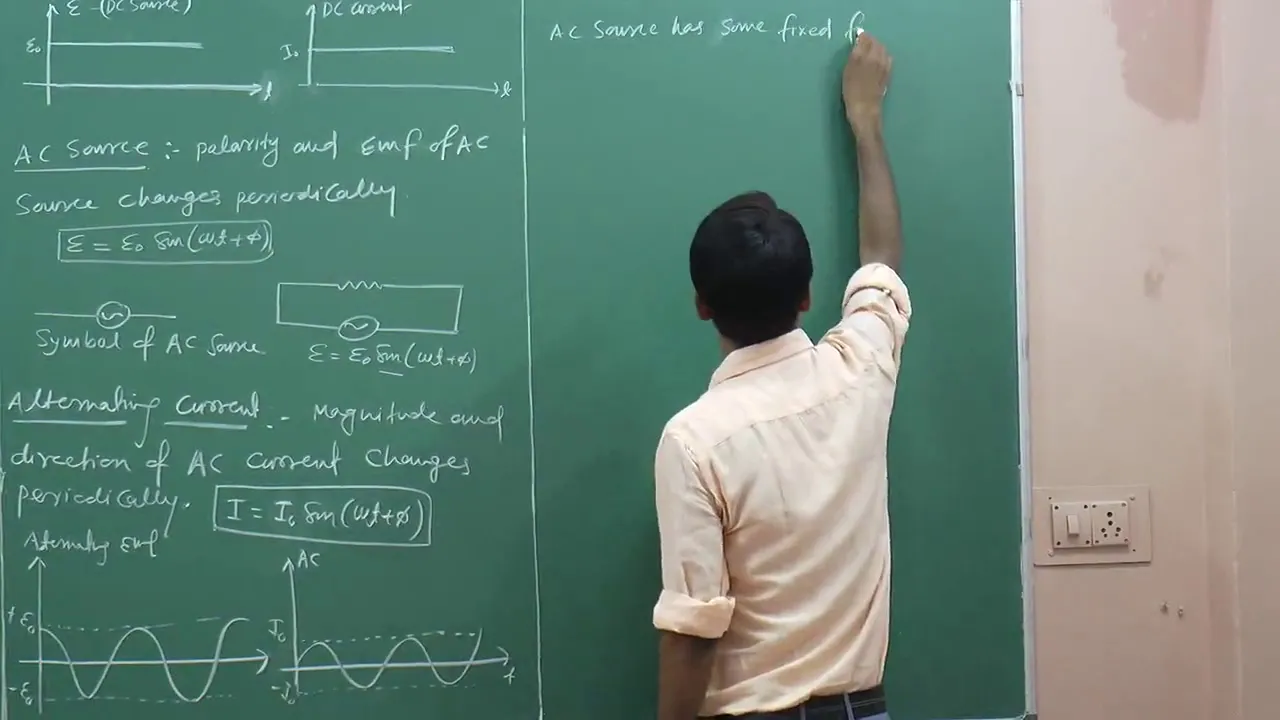 ε - (DC Source)
DC current
ε₀
I₀
t
t
AC Source :- palarity and Emf of AC
Source changes periodically.
ε = ε₀ Sin(ωt+φ)
Symbol of AC Source
ε = ε₀ Sin(ωt+φ)
Alternating Current :- Magnitude and
direction of AC Current Changes
periodically.
I = I₀ Sin(ωt+φ)
Alternating Emf
AC
+ε₀
-ε₀
I₀
-I₀
t
AC Source has some fixed f